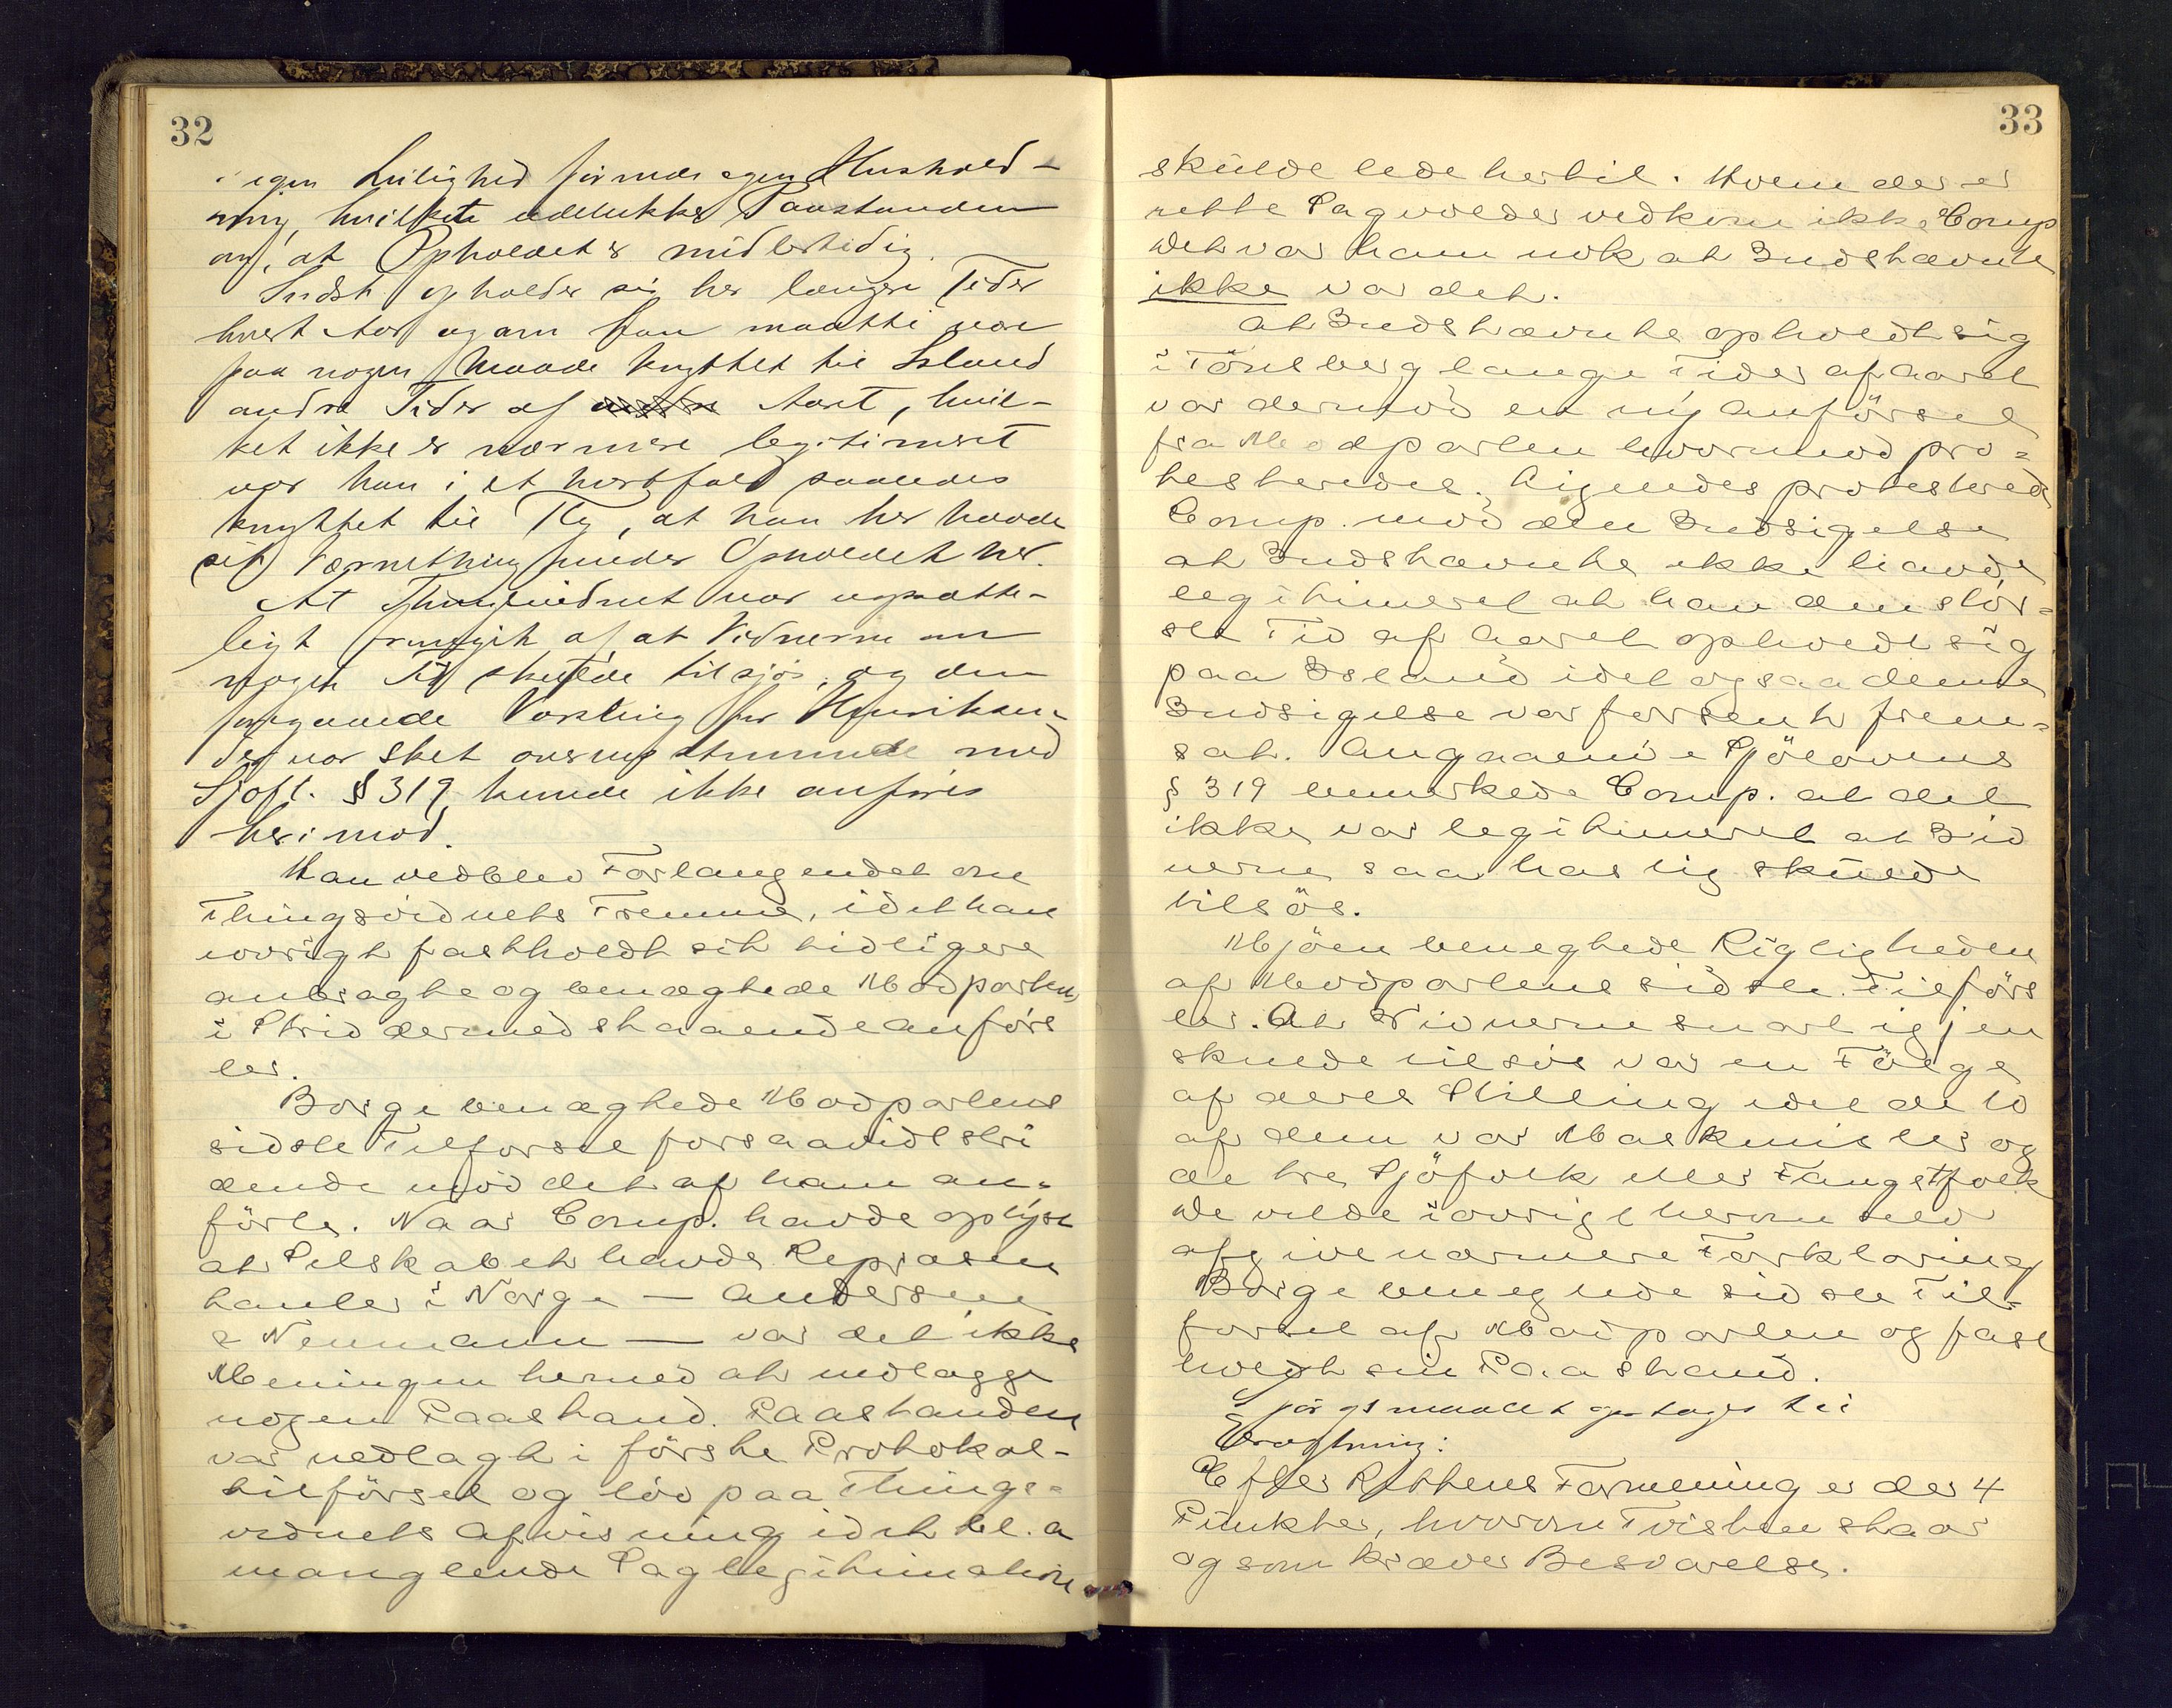 32
i egen Leilighed fører egen Hushold-
ning, hvilket udelukker Paastanden
om, at Opholdet er midlertidig.
Indst. opholder sig her længere Tider
hvert Aar og om han maatte være
paa nogen Maade knyttet til Island
andre Tider af Aaret, hvil-
ket ikke er nærmere legitimeret
var han i et hvert fald saaledes
knyttet til Tbg, at han her havde
sit Værnething under Opholdet her.
At Thingsvidnet var uopsætte-
ligt fremgik af, at Vidnerne om
nogen Tid skulde tilsjøs, og den
foregaaende Varsling for Henriksen,
der var skeet overensstemmende med
Sjøfl. § 319, kunde ikke anføres
herimod.
Han vedblev Forlangendet om
Thingsvidnets Fremme, idet han
iøvrigt fastholdt sit tidligere
anbragte og benægtede Modpartens
i Strid dermed staaende anførs
ler.
Borge benægtede Modpartens
sidste Tilførsel forsaavidt stri
dende mod det af ham an-
førte. Naar Comp. havde oplyst
at Selskabet havde Repræsen
tanter i Norge — Andersen
& Neumann — var det ikke
Meningen herved at nedlægge
nogen Paastand. Paastanden
var nedlagt i første Protokol-
tilførsel og lød paa Things-
vidnets Afvisning idet bl. a
manglende Saglegitimation
33
skulde lede hertil. Hvem der er
rette Sagvolder vedkom ikke Comp
det var ham nok at Indstævnte
ikke var det.
At Indstævnte opholdt sig
i Tönsberg lange Tider af Aaret
var dernæst en ny Anförsel
fra Modparten hvormod pro-
testeredes. Ligeledes protesterede
Comp. mod den Indsigelse
at Indstævnte ikke havde
legitimeret at han den stör-
ste Tid af Aaret opholdt sig
paa Island idet ogsaa denne
Indsigelse var for sent frem-
sat. Angaaende Sjölovens
§ 319 bemærkede Comp. at det
ikke var legitimeret at Vid
nerne saa hastig skulde
tilsös.
Mjöen benegtede Rigtigheden
af Modpartens sidste Tilförs
ler. At Vidnerne snart igjen
skulde tilsös var en Fölge
af deres Stilling idet de to
af dem var Maskinister og
de tre Sjöfolk eller Fangstfolk
De vilde iövrigt herom selv
afgive nærmere Forklaring
Borge benegtede sidste Til-
försel af Modparten og fast
holdt sin Paastand.
Spörgsmaalet optages til
Eragtning:
Efter Rettens Formening er der 4
Punkter, hvorom Tvisten staar
og som kræver Besvarelse.